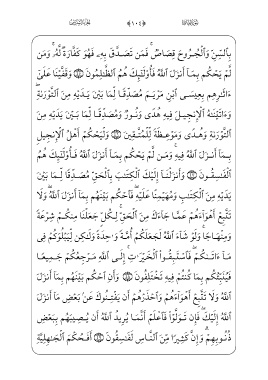 بِٱلسِّنِّ وَٱلْجُرُوحَ قِصَاصٌ ۚ فَمَن تَصَدَّقَ بِهِۦ فَهُوَ كَفَّارَةٌ لَّهُۥ ۚ وَمَن
لَّمْ يَحْكُم بِمَآ أَنزَلَ ٱللَّهُ فَأُو۟لَٰٓئِكَ هُمُ ٱلظَّٰلِمُونَ وَقَفَّيْنَا عَلَىٰٓ
ءَاثَٰرِهِم بِعِيسَى ٱبْنِ مَرْيَمَ مُصَدِّقًا لِّمَا بَيْنَ يَدَيْهِ مِنَ ٱلتَّوْرَىٰةِ ۖ
وَءَاتَيْنَٰهُ ٱلْإِنجِيلَ فِيهِ هُدًى وَنُورٌ وَمُصَدِّقًا لِّمَا بَيْنَ يَدَيْهِ مِنَ
ٱلتَّوْرَىٰةِ وَهُدًى وَمَوْعِظَةً لِّلْمُتَّقِينَ وَلْيَحْكُمْ أَهْلُ ٱلْإِنجِيلِ
بِمَآ أَنزَلَ ٱللَّهُ فِيهِ ۚ وَمَن لَّمْ يَحْكُم بِمَآ أَنزَلَ ٱللَّهُ فَأُو۟لَٰٓئِكَ هُمُ
ٱلْفَٰسِقُونَ وَأَنزَلْنَآ إِلَيْكَ ٱلْكِتَٰبَ بِٱلْحَقِّ مُصَدِّقًا لِّمَا بَيْنَ
يَدَيْهِ مِنَ ٱلْكِتَٰبِ وَمُهَيْمِنًا عَلَيْهِ ۖ فَٱحْكُم بَيْنَهُم بِمَآ أَنزَلَ ٱللَّهُ ۖ وَلَا
تَتَّبِعْ أَهْوَآءَهُمْ عَمَّا جَآءَكَ مِنَ ٱلْحَقِّ ۚ لِكُلٍّ جَعَلْنَا مِنكُمْ شِرْعَةً
وَمِنْهَاجًا ۚ وَلَوْ شَآءَ ٱللَّهُ لَجَعَلَكُمْ أُمَّةً وَٰحِدَةً وَلَٰكِن لِّيَبْلُوَكُمْ فِى
مَآ ءَاتَىٰكُمْ ۖ فَٱسْتَبِقُوا۟ ٱلْخَيْرَٰتِ ۚ إِلَى ٱللَّهِ مَرْجِعُكُمْ جَمِيعًا
فَيُنَبِّئُكُم بِمَا كُنتُمْ فِيهِ تَخْتَلِفُونَ وَأَنِ ٱحْكُم بَيْنَهُم بِمَآ أَنزَلَ
ٱللَّهُ وَلَا تَتَّبِعْ أَهْوَآءَهُمْ وَٱحْذَرْهُمْ أَن يَفْتِنُوكَ عَنۢ بَعْضِ مَآ أَنزَلَ
ٱللَّهُ إِلَيْكَ ۖ فَإِن تَوَلَّوْا۟ فَٱعْلَمْ أَنَّمَا يُرِيدُ ٱللَّهُ أَن يُصِيبَهُم بِبَعْضِ
ذُنُوبِهِمْ ۗ وَإِنَّ كَثِيرًا مِّنَ ٱلنَّاسِ لَفَٰسِقُونَ أَفَحُكْمَ ٱلْجَٰهِلِيَّةِ